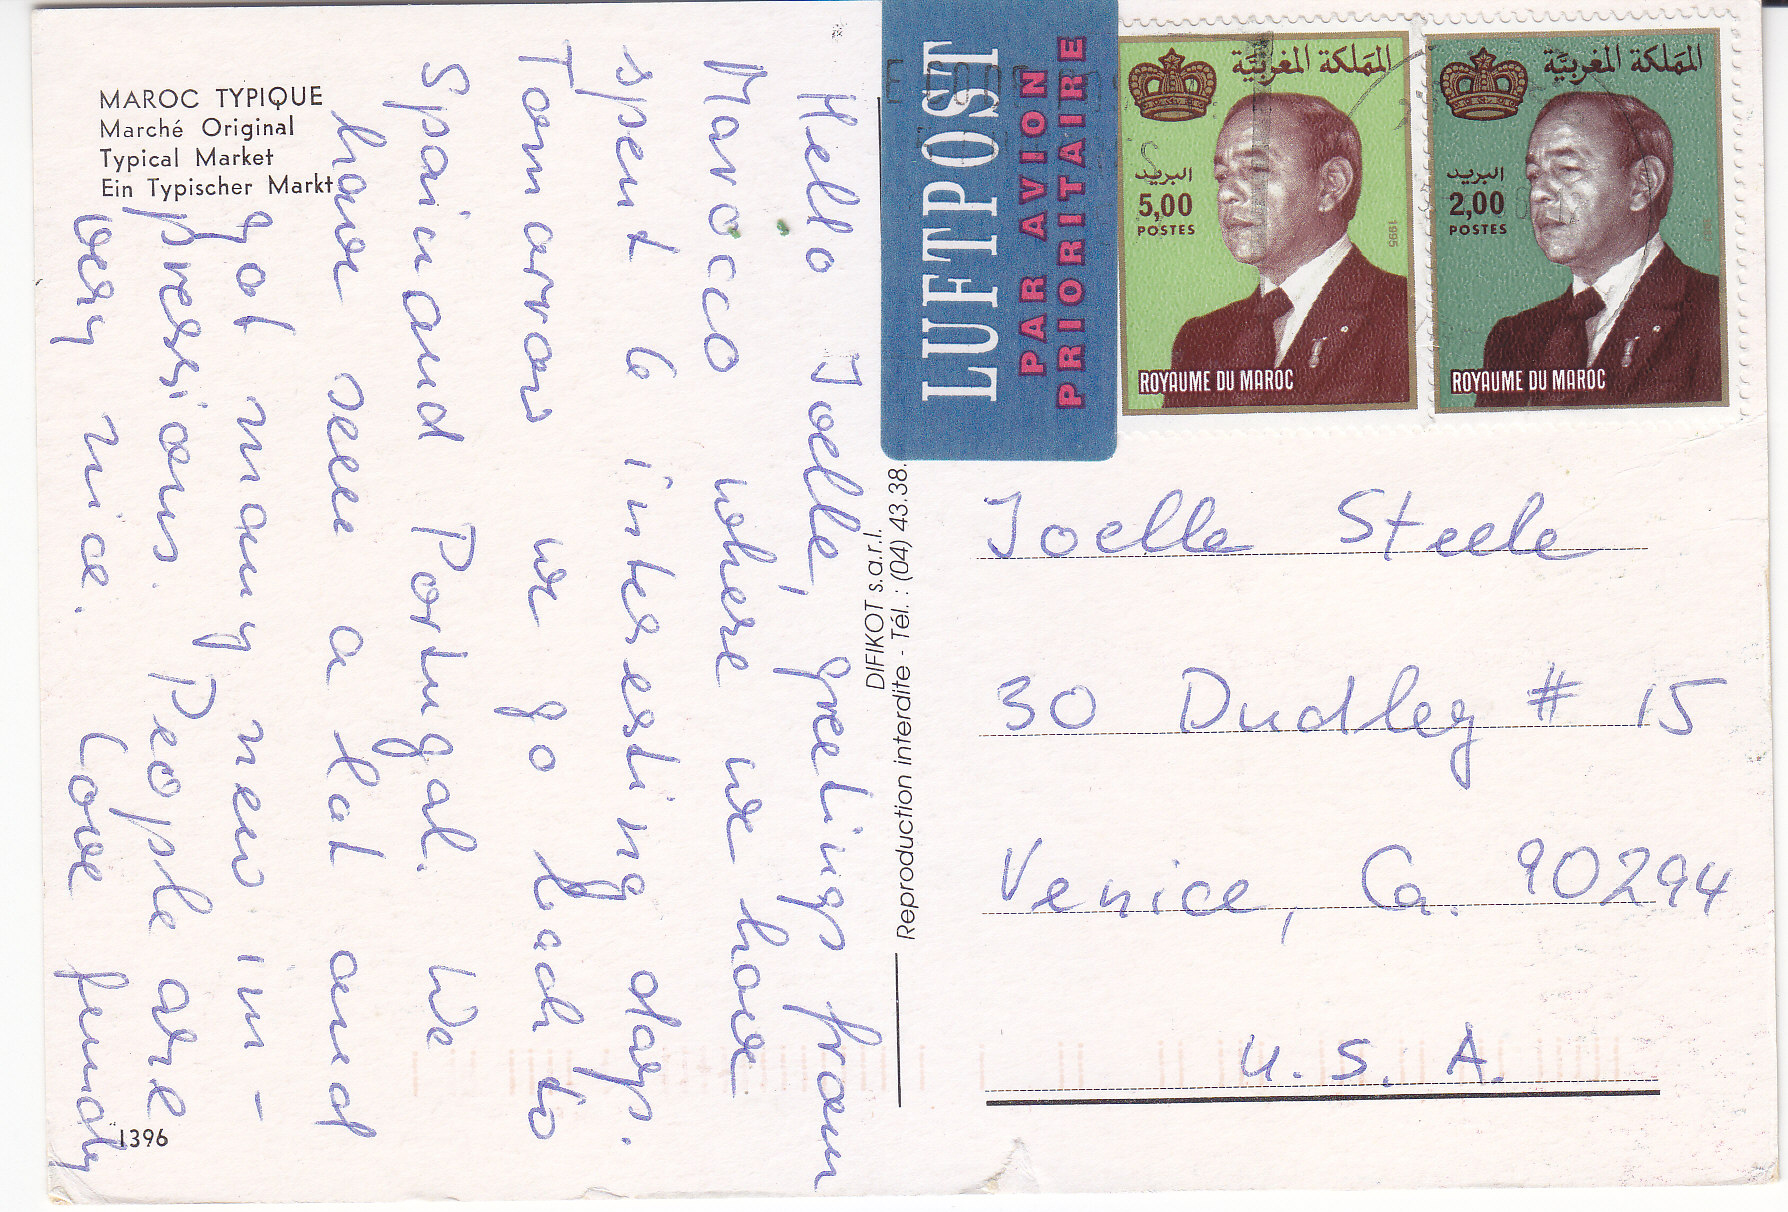 MAROC TYPIQUE
Marché Original
Typical Market
Ein Typischer Markt
Hello Joelle, greetings from
Marocco where we have
spent 6 interesting days.
Tomorrow we go back to
Spain and Portugal. We
have seen a lot and
got many new im-
pressions. People are
very nice. Love
1396
DIFIKOT s.a.r.l.
Reproduction interdite - Tél. : (04) 43.38.
LUFTPOST
PAR AVION
PRIORITAIRE
المملكة المغربية
البريد
5,00
POSTES
1995
ROYAUME DU MAROC
المملكة المغربية
البريد
2,00
POSTES
ROYAUME DU MAROC
Joelle Steele
30 Dudley # 15
Venice, Ca. 90294
U.S.A.